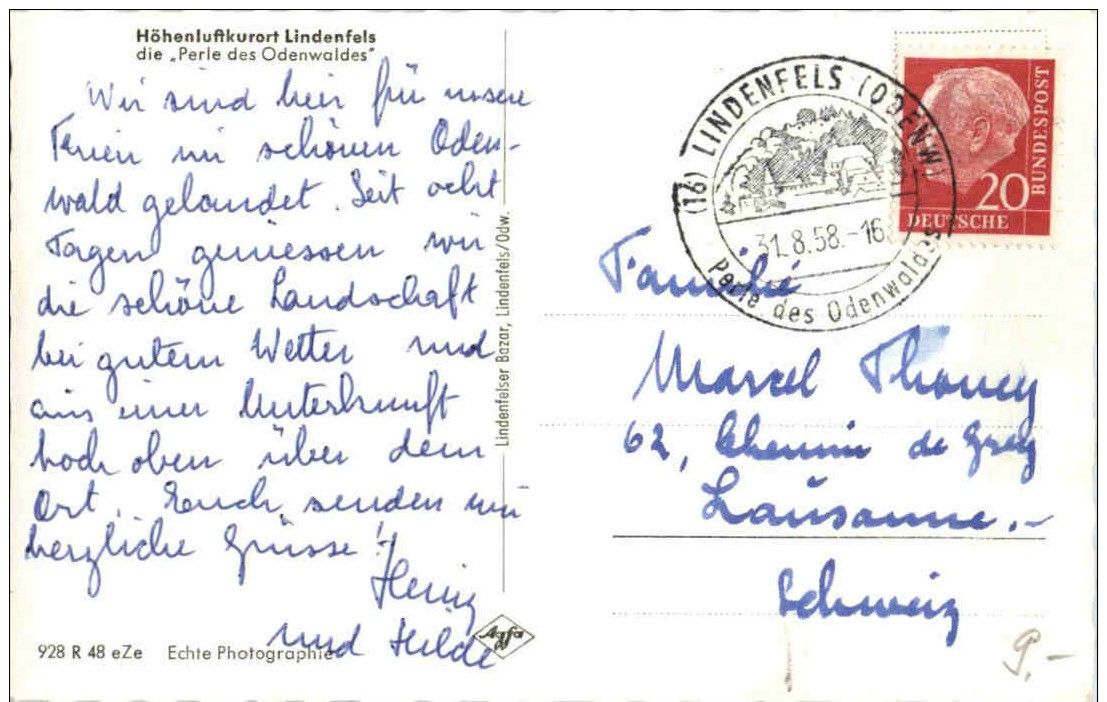 Höhenluftkurort Lindenfels
die „Perle des Odenwaldes"
Wir sind hier für unsere
Ferien im schönen Oden-
wald gelandet. Seit acht
Tagen geniessen wir
die schöne Landschaft
bei gutem Wetter und
aus einer Unterkunft
hoch oben über dem
Ort. Euch senden wir
herzliche Grüsse!
Heinz
und Hilde
928 R 48 eZe Echte Photographie
Agfa
Lindenfelser Bazar, Lindenfels/Odw.
(16) LINDENFELS (ODENW)
31.8.58.-16
Perle des Odenwaldes
20
DEUTSCHE
BUNDESPOST
Familie
Marcel Thoney
62, Chemin de
Lausanne.-
Schweiz
9.-